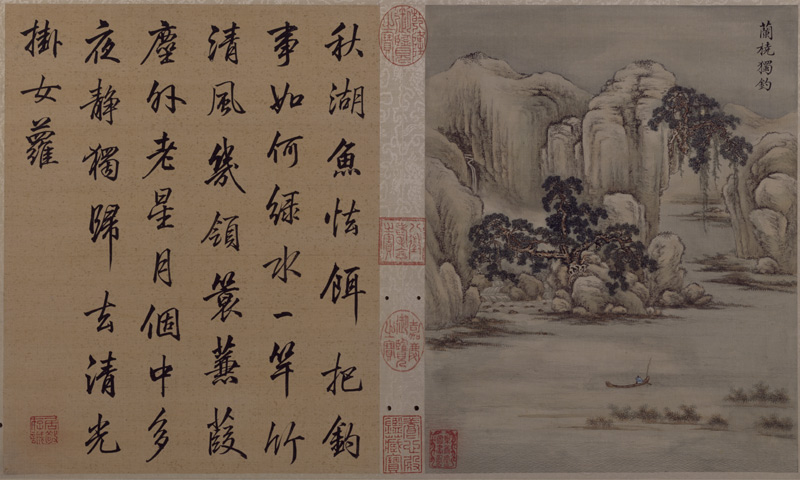 蘭橈獨釣
秋湖魚怯餌把釣
事如何綠水一竿竹
清風幾領蓑蒹葭
塵外老星月個中多
夜静獨歸去清光
掛女蘿